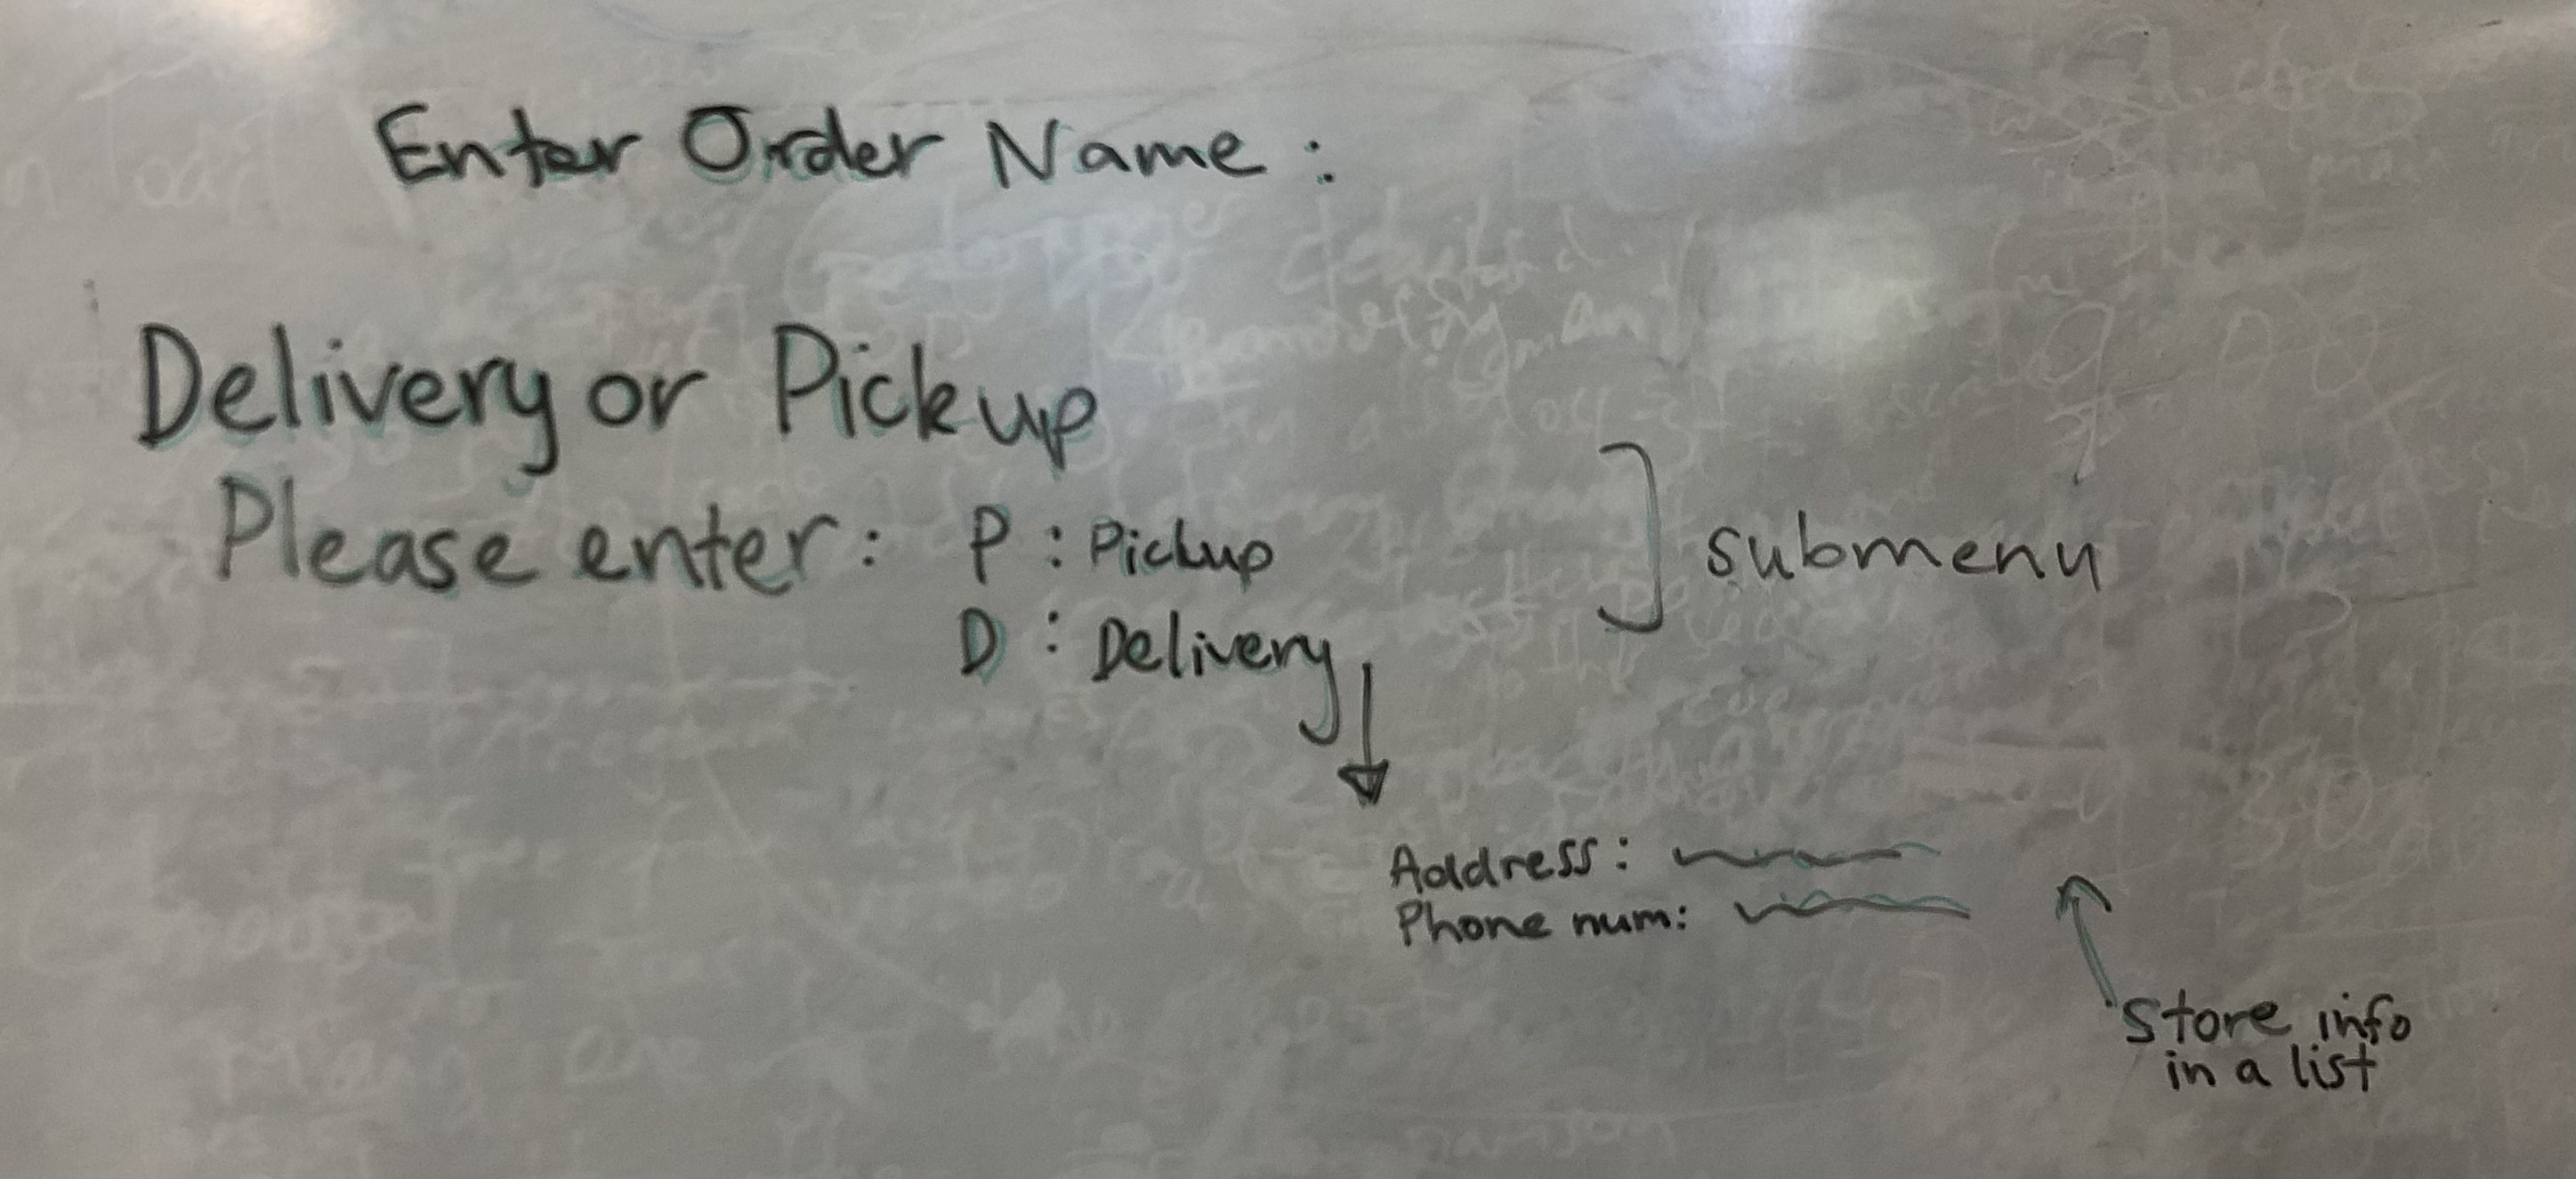 Enter Order Name :
Delivery or Pickup
Please enter : P : Pickup
D : Delivery
submenu
Address :
Phone num:
Store info
in a list